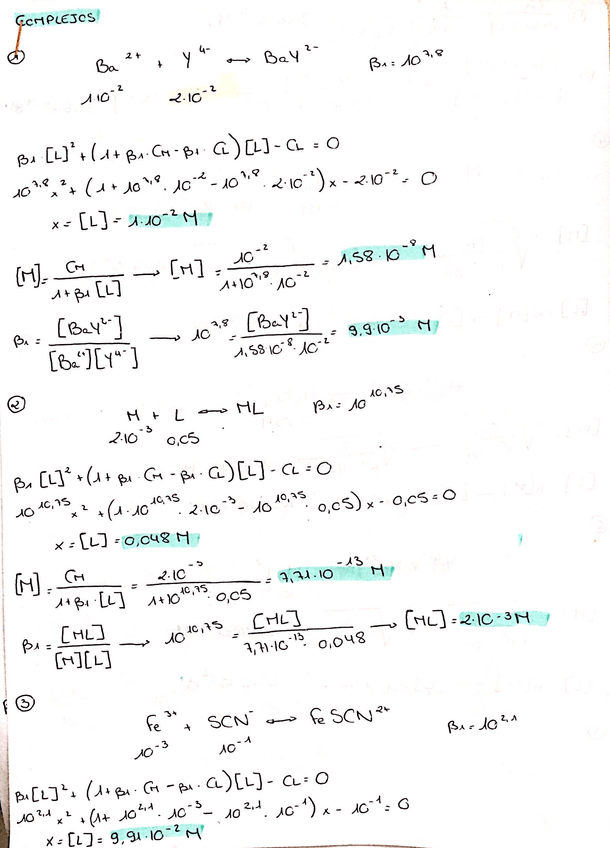 COMPLEJOS
① Ba²⁺ + Y⁴⁻ ↔ BaY²⁻ β₁ = 10^7,8
1·10⁻² 2·10⁻²
β₁·[L]² + (1 + β₁·CM - β₁·CL)[L] - CL = 0
10^7,8 x² + (1 + 10^7,8 · 10⁻² - 10^7,8 · 2·10⁻²)x - 2·10⁻² = 0
x = [L] = 1·10⁻² M
[M] = CM / (1 + β₁[L]) → [M] = 10⁻² / (1 + 10^7,8 · 10⁻²) = 1,58·10⁻⁸ M
β₁ = [BaY²⁻] / [Ba²⁺][Y⁴⁻] → 10^7,8 = [BaY²⁻] / (1,58·10⁻⁸ · 10⁻²) = 9,9·10⁻³ M
② M + L ↔ ML β₁ = 10^10,75
2·10⁻³ 0,05
β₁[L]² + (1 + β₁·CM - β₁·CL)[L] - CL = 0
10^10,75 x² + (1·10^10,75 · 2·10⁻³ - 10^10,75 · 0,05)x - 0,05 = 0
x = [L] = 0,048 M
[M] = CM / (1 + β₁·[L]) = 2·10⁻³ / (1 + 10^10,75 · 0,05) = 7,71·10⁻¹³ M
β₁ = [ML] / [M][L] → 10^10,75 = [ML] / (7,71·10⁻¹³ · 0,048) → [ML] = 2·10⁻³ M
③ Fe³⁺ + SCN⁻ ↔ FeSCN²⁺ β₁ = 10^2,1
10⁻³ 10⁻¹
β₁[L]² + (1 + β₁·CM - β₁·CL)[L] - CL = 0
10^2,1 x² + (1 + 10^2,1 · 10⁻³ - 10^2,1 · 10⁻¹)x - 10⁻¹ = 0
x = [L] = 9,91·10⁻² M